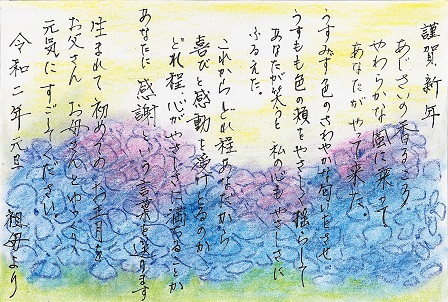 謹賀新年
あじさいの香るころ
やわらかな風に乗って
あなたがやって来た。
うすみず色のさわやかな匂いをさせ
うすもも色の頬をやさしく揺らして
あなたが笑うと 私の心もやさしさに
ふるえた。
これからどれ程あなたから
喜びと感動を受けとるのか
どれ程、心がやさしさに満ちることか
あなたに 感謝 という言葉を送ります
生まれて初めてのお正月を
お父さん お母さんとゆっくり
元気にすごしてください。
令和二年 元旦 祖母より